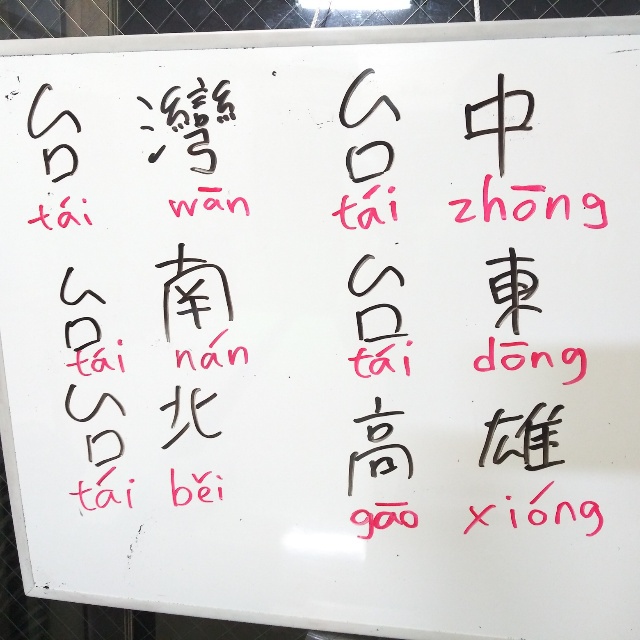 台灣
tái wān
台南
tái nán
台北
tái běi
台中
tái zhōng
台東
tái dōng
高雄
gāo xióng